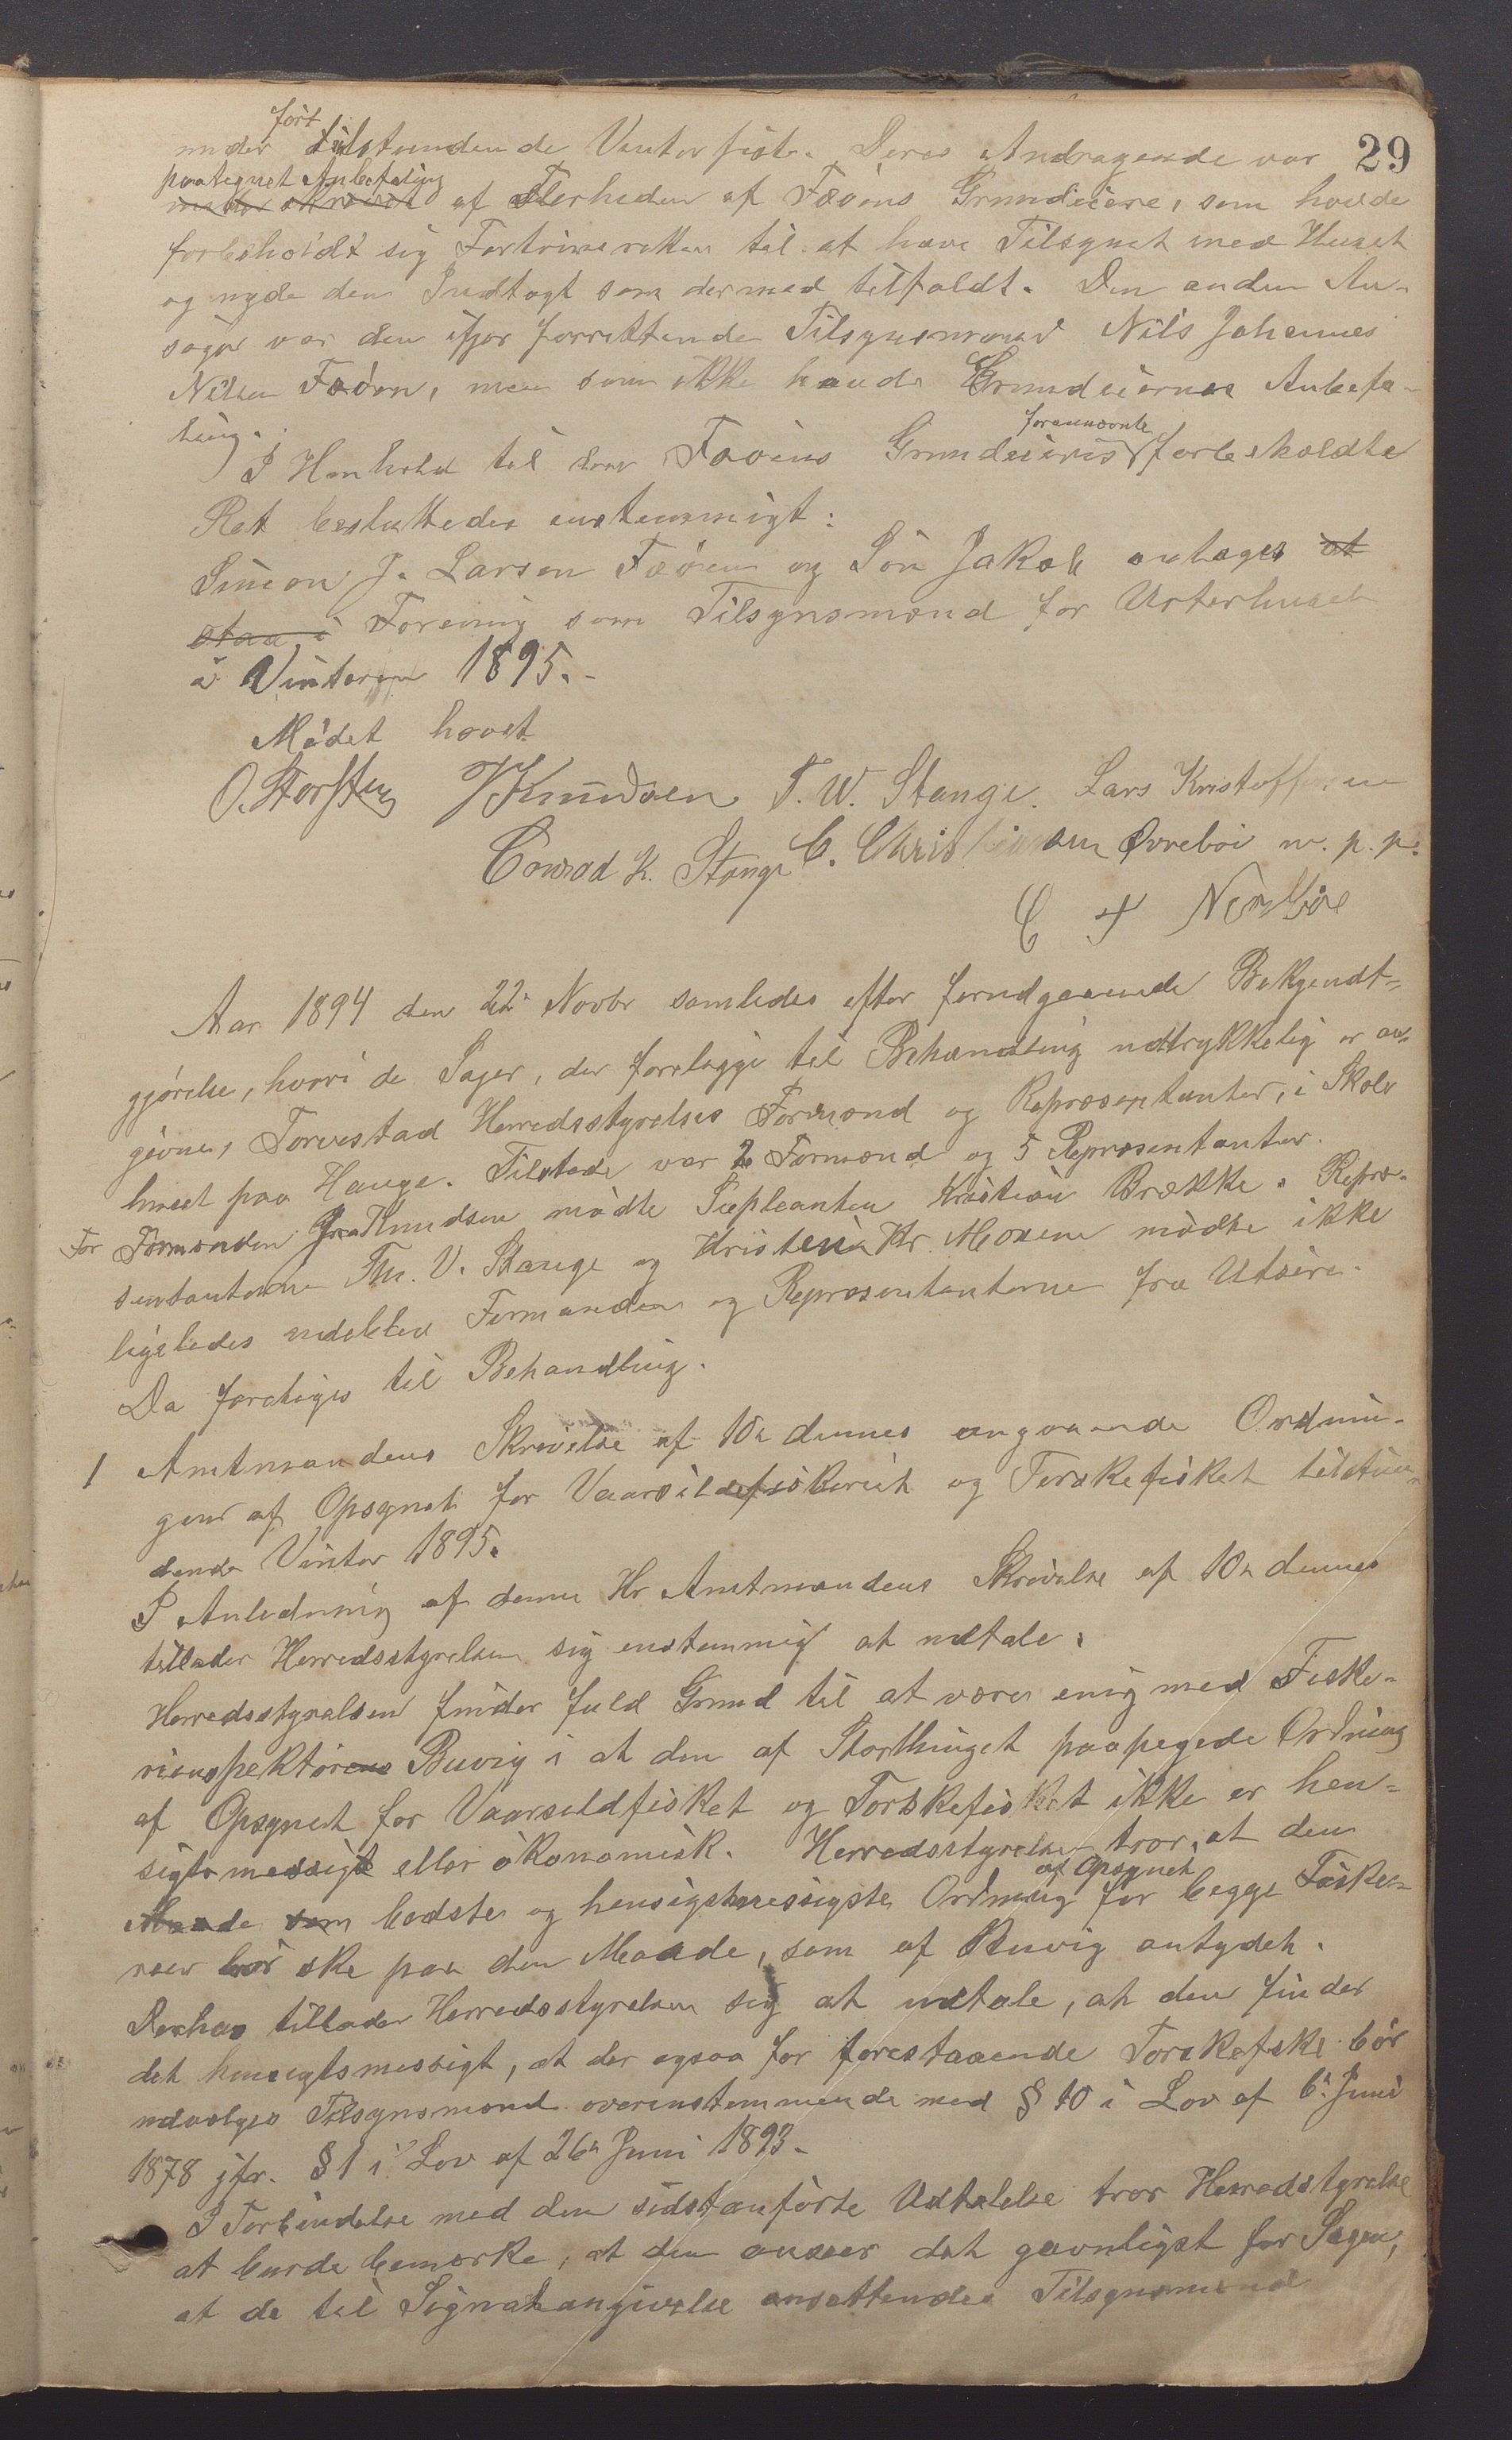 29
ført
under tilstundende Vinterfiske. Deres Andragende var
paategnet Anbefaling
af Flerheden af Fæöens Grundeiere, som havde
forbeholdt sig Fortrinsretten til at have Tilsynet med Huset
og nyde den Indtægt som dermed tilfaldt. Den anden An-
söger var den ifjor forrettende Tilsynsmand Nils Johannes
Nilsen Fæöen, men som ikke havde Grundeiernes Anbefa-
ling.
forannævnte
I Henhold til Fæöens Grundeieres forbeholdte
Ret besluttedes enstemmigt:
Simon J. Larsen Fæöen og Sön Jakob antages at
staa i Forening som Tilsynsmænd for Urterhuset
i Vinteren 1895.-
Mödet hævet
O. Storsten J Knudsen T. W. Stange. Lars Kristoffersen
Conrad K. Stange C. Christiansen Øvreböi m. p. p.
Aar 1894 den 22de Novbr samledes efter forudgaaende Bekjendt-
gjörelse, hvori de Sager, der forelegge til Behandling udtrykkelig er an-
givne, Torvestad Herredsstyrelses Formænd og Repræsentanter, i Skole
huset paa Hauge. Tilstede var 2 Formænd og 5 Repræsentanter.
For Formanden Knudsen mödte Supleanten Kristian Brække. Repræ-
sentanterne Thr. V. Stange og Kristen Kr. Moxeen mödte ikke
ligeledes udeblev Formanden og Repræsentanterne fra Utsire.
Da foretoges til Behandling.
1 Amtmandens Skrivelse af 10de dennes angaaende Ordnin-
gen af Opsynet for Vaarsildefiskeriet og Torskefisket tilstun-
dende Vinter 1895.
I Anledning af denne Hr Amtmandens Skrivelse af 10de dennes
tillader Herredsstyrelsen sig enstemmig at udtale:
Herredsstyrelsen finder fuld Grund til at være enig med Fiske-
riinspektörens Buvig i at den af Storthinget paapegede Ordning
af Opsynet for Vaarsildfisket og Torskefisket ikke er hen-
sigtsmessigt eller ökonomisk. Herredsstyrelsen tror, at den
af Opsynet
Maade som bedste og hensigtsmessigste Ordning for begge Fiske-
rier bör ske paa den Maade, som af Buvig antydet.
Derhos tillader Herredsstyrelsen sig at udtale, at den finder
det hensigtsmessigt, at der ogsaa for forestaaende Torskefiske bör
udvælges Tilsynsmænd overensstemmende med § 10 i Lov af 6te Juni
1878 jfr. § 1 i Lov af 26de Juni 1893.
I Forbindelse med den sidstanförte Udtalelse tror Herredstyrelse
at burde bemærke, at den anseer det gavnligst for Sagen,
at de til Signalangivelse ansættendes Tilsynsmænd